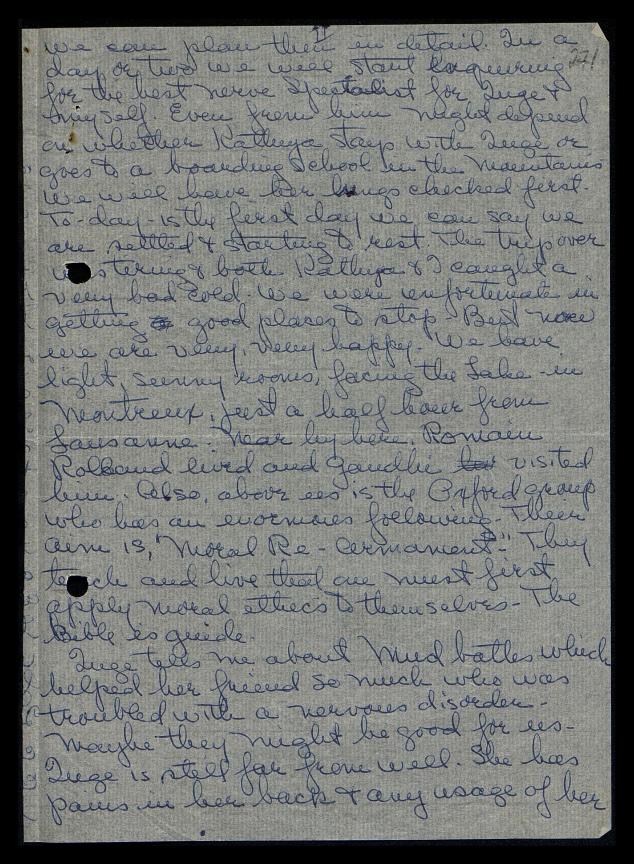 II
we can plan then in detail. In a
271
day or two we will start enquiring
for the best nerve Specialist for Inge &
myself. Even from him might depend
on whether Kathya stays with Inge or
goes to a boarding School in the Mountains
we will have her lungs checked first.
To-day-is the first day we can say we
are settled & starting to rest. The trip over
was & both Kathya & I caught a
very bad cold. We were unfortunate in
getting good places to stop. But now
we are very, very happy. We have
light, sunny rooms, facing the Lake-in
Montreux, just a half hour from
Lausanne. Near by here, Romain
Rolland lived and Gandhi visited
him. Also, above us is the Oxford group
who has an enormous following. Their
aim is, "Moral Re-armament". They
teach and live that an must first
apply moral ethics to themselves- The
Bible is guide.
Inge tells me about Mud baths which
helped her friend so much who was
troubled with a nervous disorder-
Maybe they might be good for us-
Inge is still far from well. She has
pains in her back & any usage of her